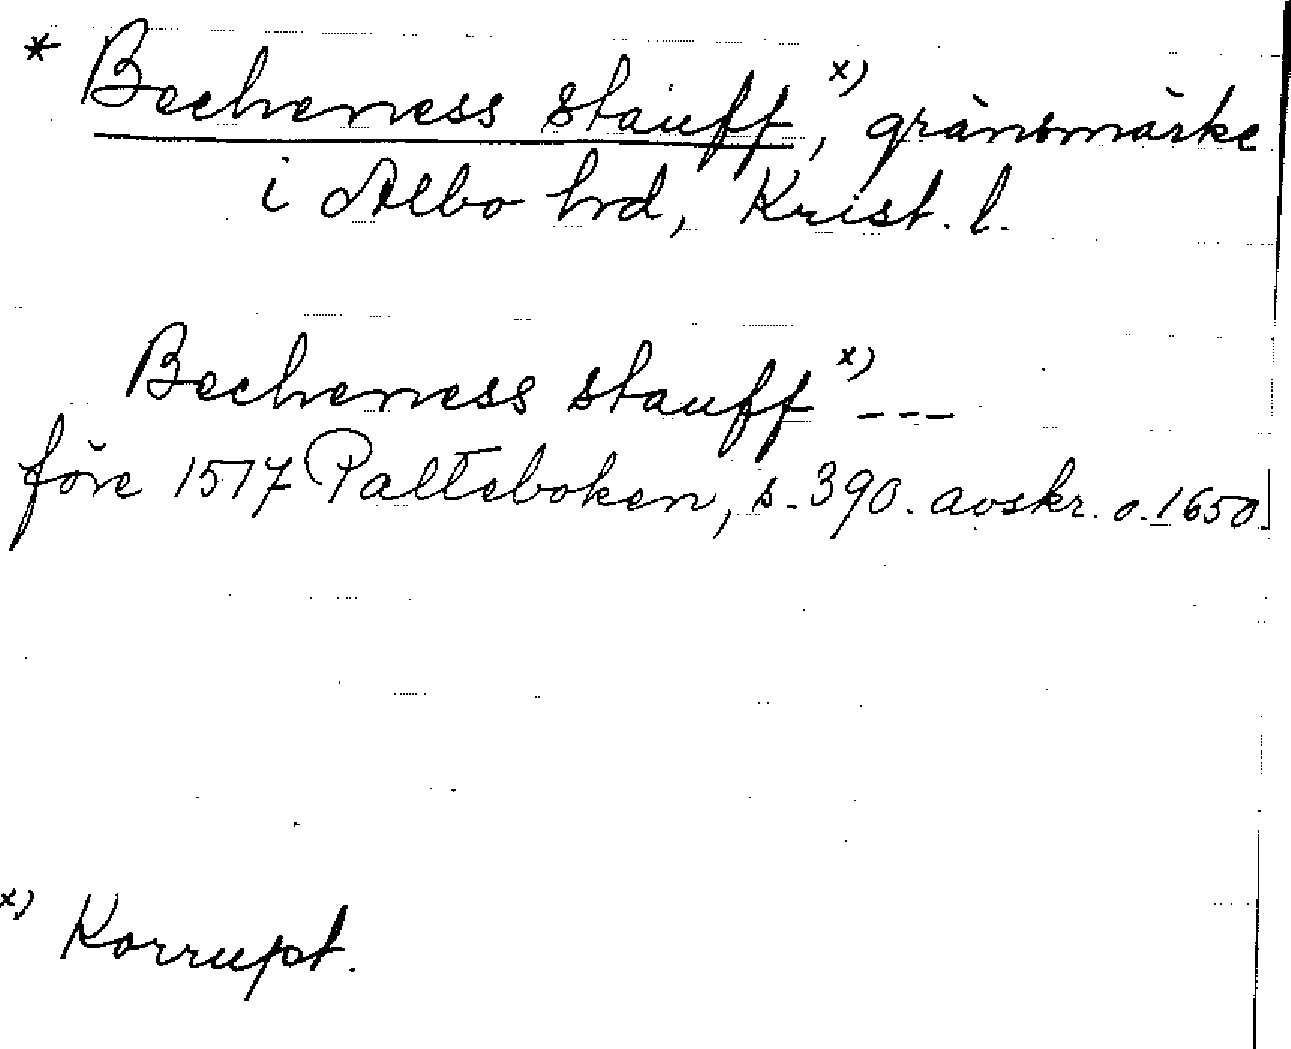 * Becheness stauff, x) gränsmärke
i Albo hrd, Krist. l.
Becheness stauff x) ---
före 1517 Palteboken, s. 390. avskr. o. 1650.
x) Korrupt.